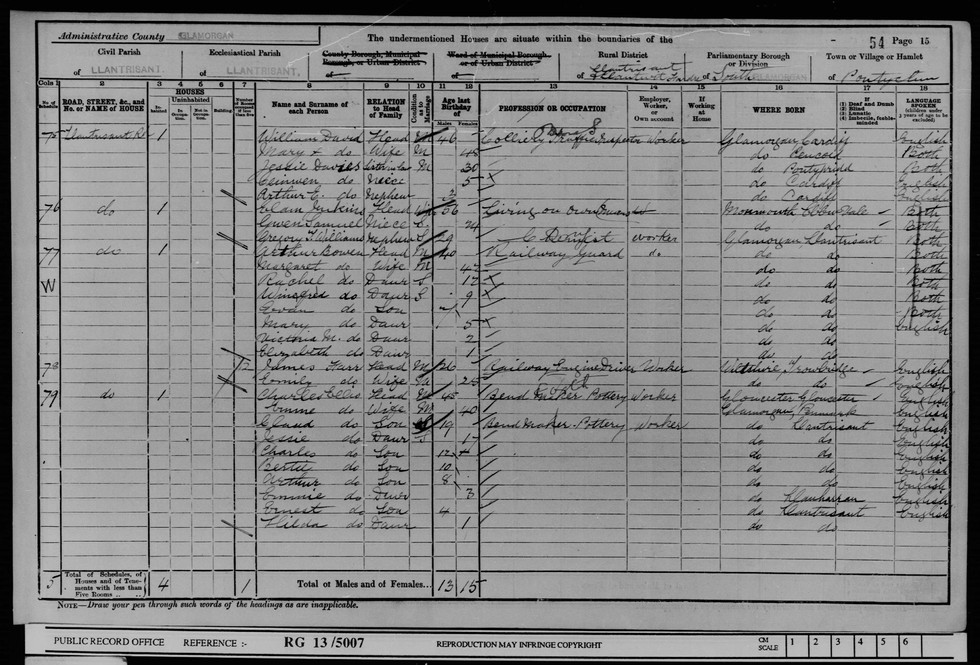 Administrative County GLAMORGAN
The undermentioned Houses are situate within the boundaries of the
54 Page 15
Civil Parish
of LLANTRISANT.
Ecclesiastical Parish
of LLANTRISANT.
County Borough, Municipal Borough, or Urban District
of
Ward of Municipal Borough or of Urban District
of
Rural District
of Llantrisant
Parliamentary Borough or Division
of South GLAMORGAN
Town or Village or Hamlet
of Pontyclun
Cols 1 2 3 4 5 6 7 8 9 10 11 12 13 14 15 16 17 18
No. of Schedule
ROAD, STREET, &c., and No. or NAME of HOUSE
HOUSES
Inhabited
Uninhabited
In Occupation.
Not in Occupation.
Building
Name and Surname of each Person
RELATION to Head of Family
Condition as to Marriage
Age last Birthday of
Males Females
PROFESSION OR OCCUPATION
Employer, Worker, or Own account
If Working at Home
WHERE BORN
(1) Deaf and Dumb
(2) Blind
(3) Lunatic
(4) Imbecile, feeble-minded
LANGUAGE SPOKEN
(children under 3 years of age to be excluded)
75 Llantrisant Rd 1 William David Head M 46 Colliery Traffic Inspector Worker Glamorgan Cardiff English
Mary do Wife M 45 do Both
Jessie Davies M 30 do Pontypridd Both
do Niece 5 do Cardiff English
Arthur E. do Nephew 3 do Cardiff English
76 do 1 Jenkins Head 56 Living on own Monmouth Ebbw Vale Both
Gwen Samuel Niece S 24 do do Both
Gregory Williams Nephew S 29 Worker Glamorgan Llantrisant Both
77 do 1 Arthur Bowen Head M 40 Railway Guard do do do Both
Margaret do Wife M 42 do do Both
W Rachel do Daur S 12 do do Both
Winefred do Daur S 9 do do Both
do Son 7 do do Both
Mary do Daur 5 do do English
Victoria M. do Daur 2 do do
Elizabeth do Daur 1 do do
78 2 James Farr Head M 26 Railway Engine Driver Worker Wiltshire Trowbridge English
Emily do Wife M 25 do do English
79 do 1 Charles Ellis Head M 45 Bend Maker Pottery Worker Gloucester Gloucester English
Emme do Wife M 40 Glamorgan English
Claud do Son S 19 Bend Maker Pottery Worker do Llantrisant English
Jessie do Daur S 17 do do English
Charles do Son 12 do do English
Bertie do Son 10 do do English
Arthur do Son 8 do do English
Emmie do Daur 3 do Llanharran English
Ernest do Son 4 do Llantrisant English
Hilda do Daur 1 do do
5 Total of Schedules, of Houses and of Tenements with less than Five Rooms 4 1 Total of Males and of Females... 13 15
NOTE—Draw your pen through such words of the headings as are inapplicable.
PUBLIC RECORD OFFICE REFERENCE :- RG 13/5007 REPRODUCTION MAY INFRINGE COPYRIGHT CM SCALE 1 2 3 4 5 6